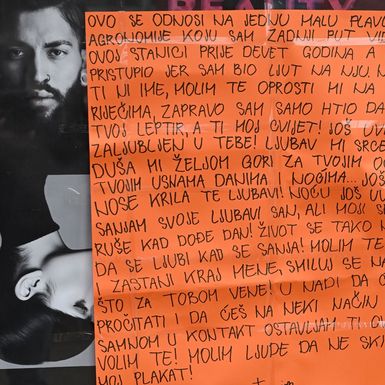 BEAUTY
OVO SE ODNOSI NA JEDNU MALU PLAVU
AGRONOMIJE KOJU SAM ZADNJI PUT VIDIO
OVOJ STANICI PRIJE DEVET GODINA A
PRISTUPIO JER SAM BIO LJUT NA NJU
TI NI IME, MOLIM TE OPROSTI MI NA
RIJEČIMA, ZAPRAVO SAM SAMO HTIO DA
TVOJ LEPTIR, A TI MOJ CVIJET! JOŠ
ZALJUBLJEN U TEBE! LJUBAV MI SRCE
DUŠA MI ŽELJOM GORI ZA TVOJIM
TVOJIM USNAMA DANIMA I NOĆIMA... JOŠ
NOSE KRILA TE LJUBAVI! NOĆU JOŠ
SANJAM SVOJE LJUBAVI SAN, ALI MOJI
RUŠE KAD DOĐE DAN! ŽIVOT SE TAKO
DA SE LJUBI KAD SE SANJA! MOLIM TE
ZASTANI KRAJ MENE, SMILUJ SE NA
ŠTO ZA TOBOM VENE! U NADI DA
PROČITATI I DA ĆEŠ NA NEKI NAČIN
SAMNOM U KONTAKT OSTAVLJAM TI
VOLIM TE! MOLIM LJUDE DA NE
MOJ PLAKAT!